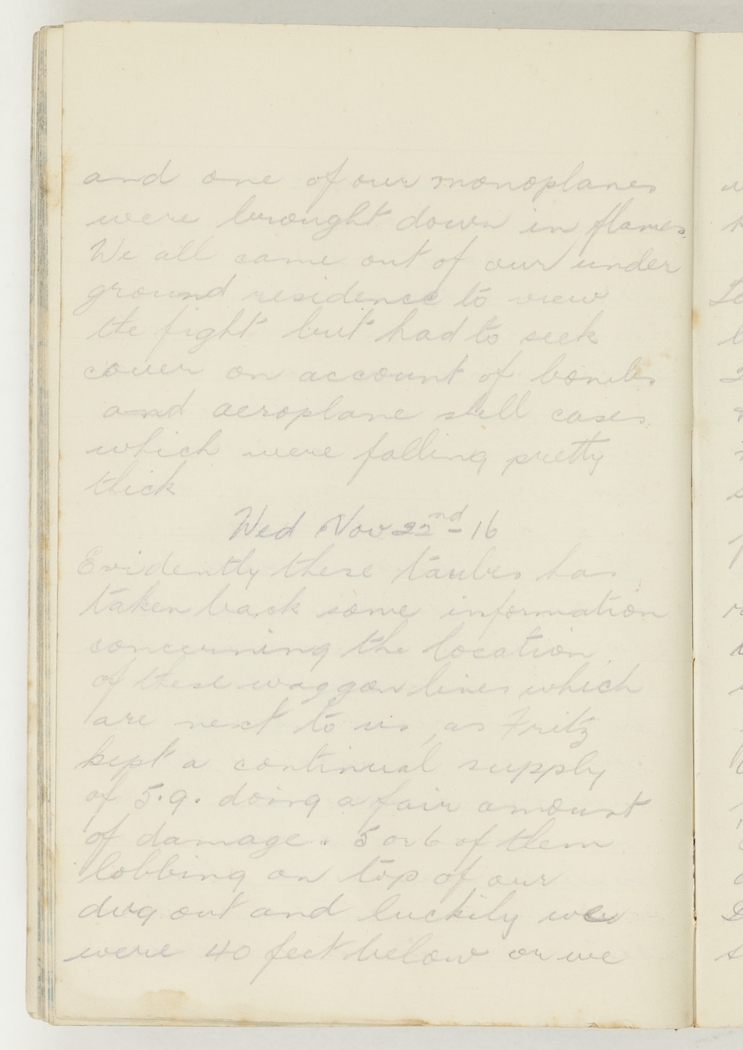 and one of our monoplanes
were brought down in flames
We all came out of our under
ground residence to view
the fight but had to seek
cover on account of bombs
and aeroplane shell cases
which were falling pretty
thick
Wed Nov 22nd - 16
Evidently these taubes has
taken back some information
concerning the location
of these waggon lines which
are next to us, as Fritz
kept a continual supply
of 5.9. doing a fair amount
of damage. 5 or 6 of them
lobbing on top of our
dug out and luckily we
were 40 feet below or we